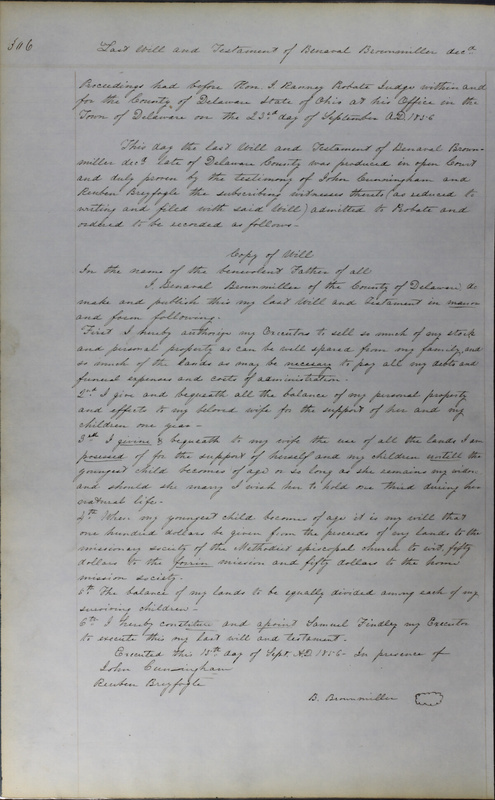 Last Will and Testament of Benaval Brownmiller decd
Proceedings had before Hon. I Ranney Probate Judge within and
for the County of Delaware State of Ohio at his Office in the
Town of Delaware on the 23rd day of September A.D. 1856
This day the last Will and Testament of Benaval Brown-
miller decd late of Delaware County was produced in open Court
and duly proven by the testimony of John Cunningham and
Reuben Breyfogle the subscribing witnesses thereto (as reduced to
writing and filed with said Will) admitted to Probate and
ordered to be recorded as follows-
Copy of Will
In the name of the benevolent Father of all
I Benaval Brownmiller of the County of Delaware do
make and publish this my last Will and Testament in manor
and form following.
First I hereby authorize my Executors to sell so much of my stock
and personal property as can be well spared from my family and
so much of the lands as may be necesary to pay all my debts and
funeral expenses and costs of administration.
2nd I give and bequeath all the balance of my personal property
and effects to my beloved wife for the support of her and my
children one year-
3rd I giveve & bequeath to my wife the use of all the lands I am
possesed of for the support of herself and my children untill the
youngest child becomes of age or so long as she remains my widow
and should she marry I wish her to hold one third during her
natural life-
4th When my youngest child becomes of age it is my will that
one hundred dollars be given from the proceeds of my lands to the
missionary society of the Methodist episcopal church to wit, fifty
dollars to the forrin mission and fifty dollars to the home
mission society-
5th The balance of my lands to be equally divided among each of my
surviving children-
6th I hereby constitute and apoint Samuel Findley my Executor
to execute this my last will and testament.
Executed this 15th day of Sept. A.D. 1856- In presence of
John Cunningham
Reuben Breyfogle
B. Brownmiller